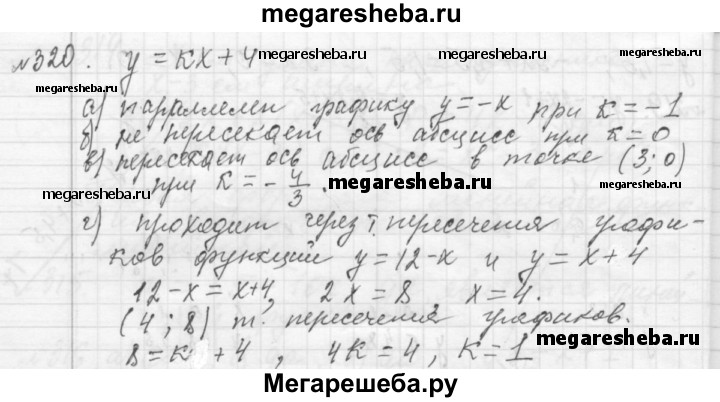 megaresheba.ru
№320. y = кх + 4 megaresheba.ru megaresheba.ru
megaresheba.ru
а) параллелен графику y = -x при к = -1
б) не пересекает ось абсцисс при к = 0
в) пересекает ось абсцисс в точке (3; 0)
при к = - 4/3. megaresheba.ru
megaresheba.ru megaresheba.ru
г) проходит через т. пересечения графи-
ков функций y = 12 - x и y = x + 4
12 - x = x + 4, 2x = 8, x = 4.
(4; 8) т. пересечения графиков.
megaresheba.ru
8 = к + 4, 4к = 4, к = 1
megaresheba.ru megaresheba.ru
Мегарешеба.ру